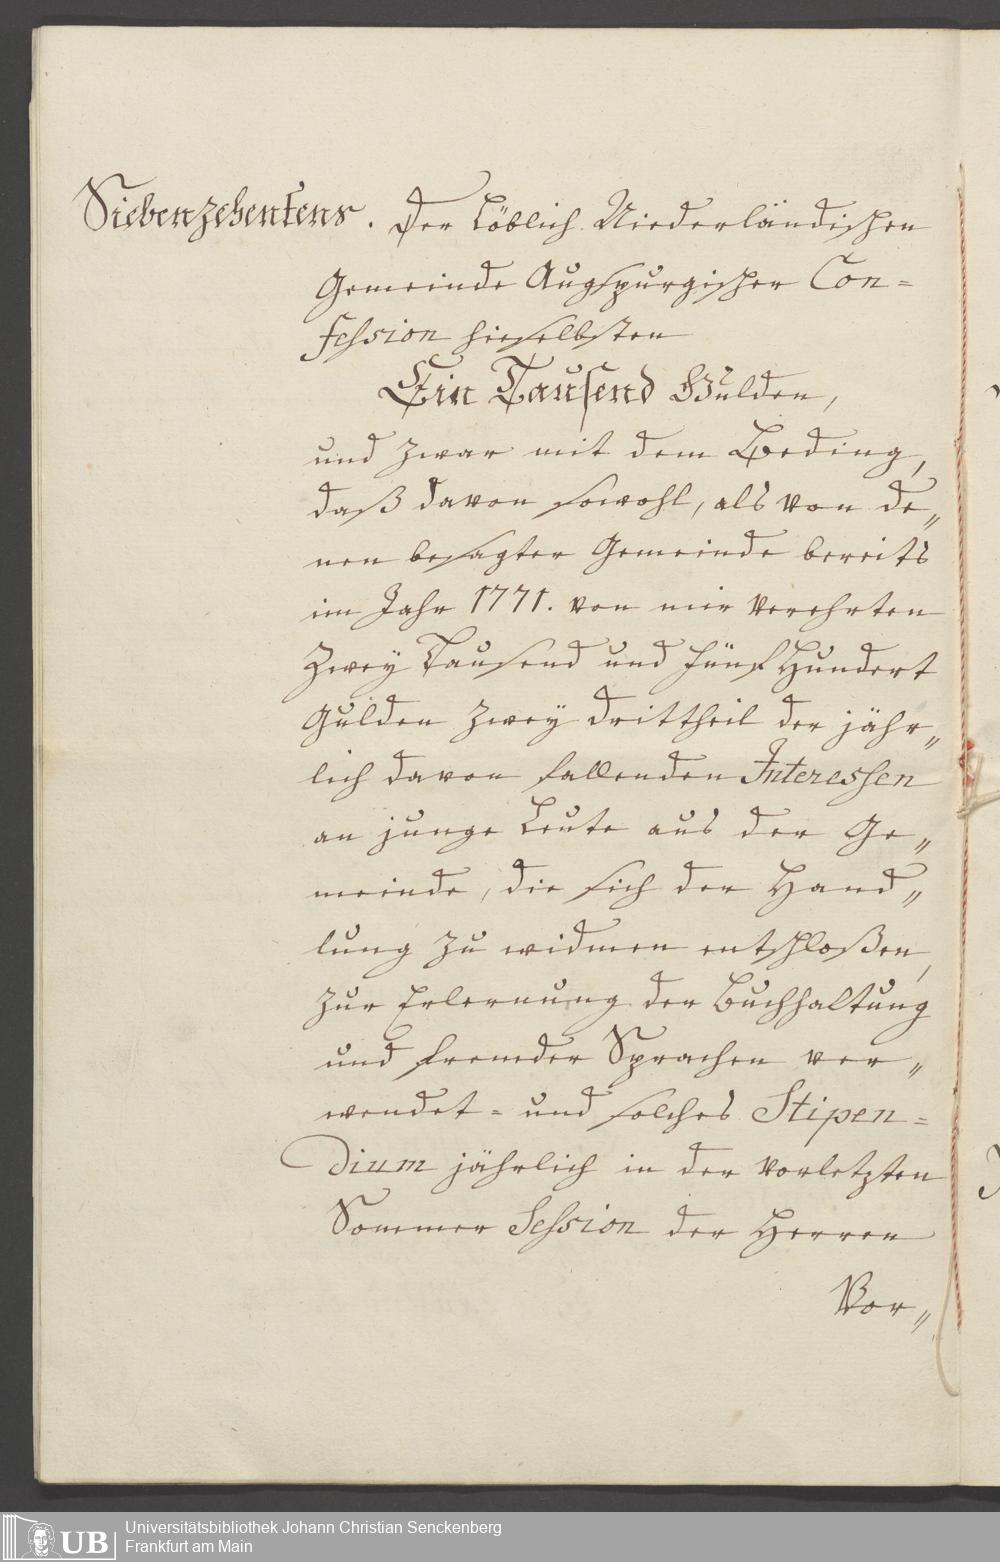 Siebenzehentens. Der Löblich Niederländischen
Gemeinde Augspurgischer Con=
fession hieselbsten
Ein Tausend Gulden,
und zwar mit dem Beding,
daß davon sowohl, als von de„
nen besagter Gemeinde bereits
im Jahr 1771. von mir verehrten
Zwey Tausend und fünf Hundert
Gulden zwey drittheil der jähr„
lich davon fallenden Interessen
an junge Leute aus der Ge„
meinde, die sich der Hand„
lung zu widmen entschloßen,
zur Erlernung der Buchhaltung
und fremder Sprachen ver„
wendet = und solches Stipen=
dium jährlich in der vorletzten
Sommer Session der Herren
Vor„
UB
Universitätsbibliothek Johann Christian Senckenberg
Frankfurt am Main